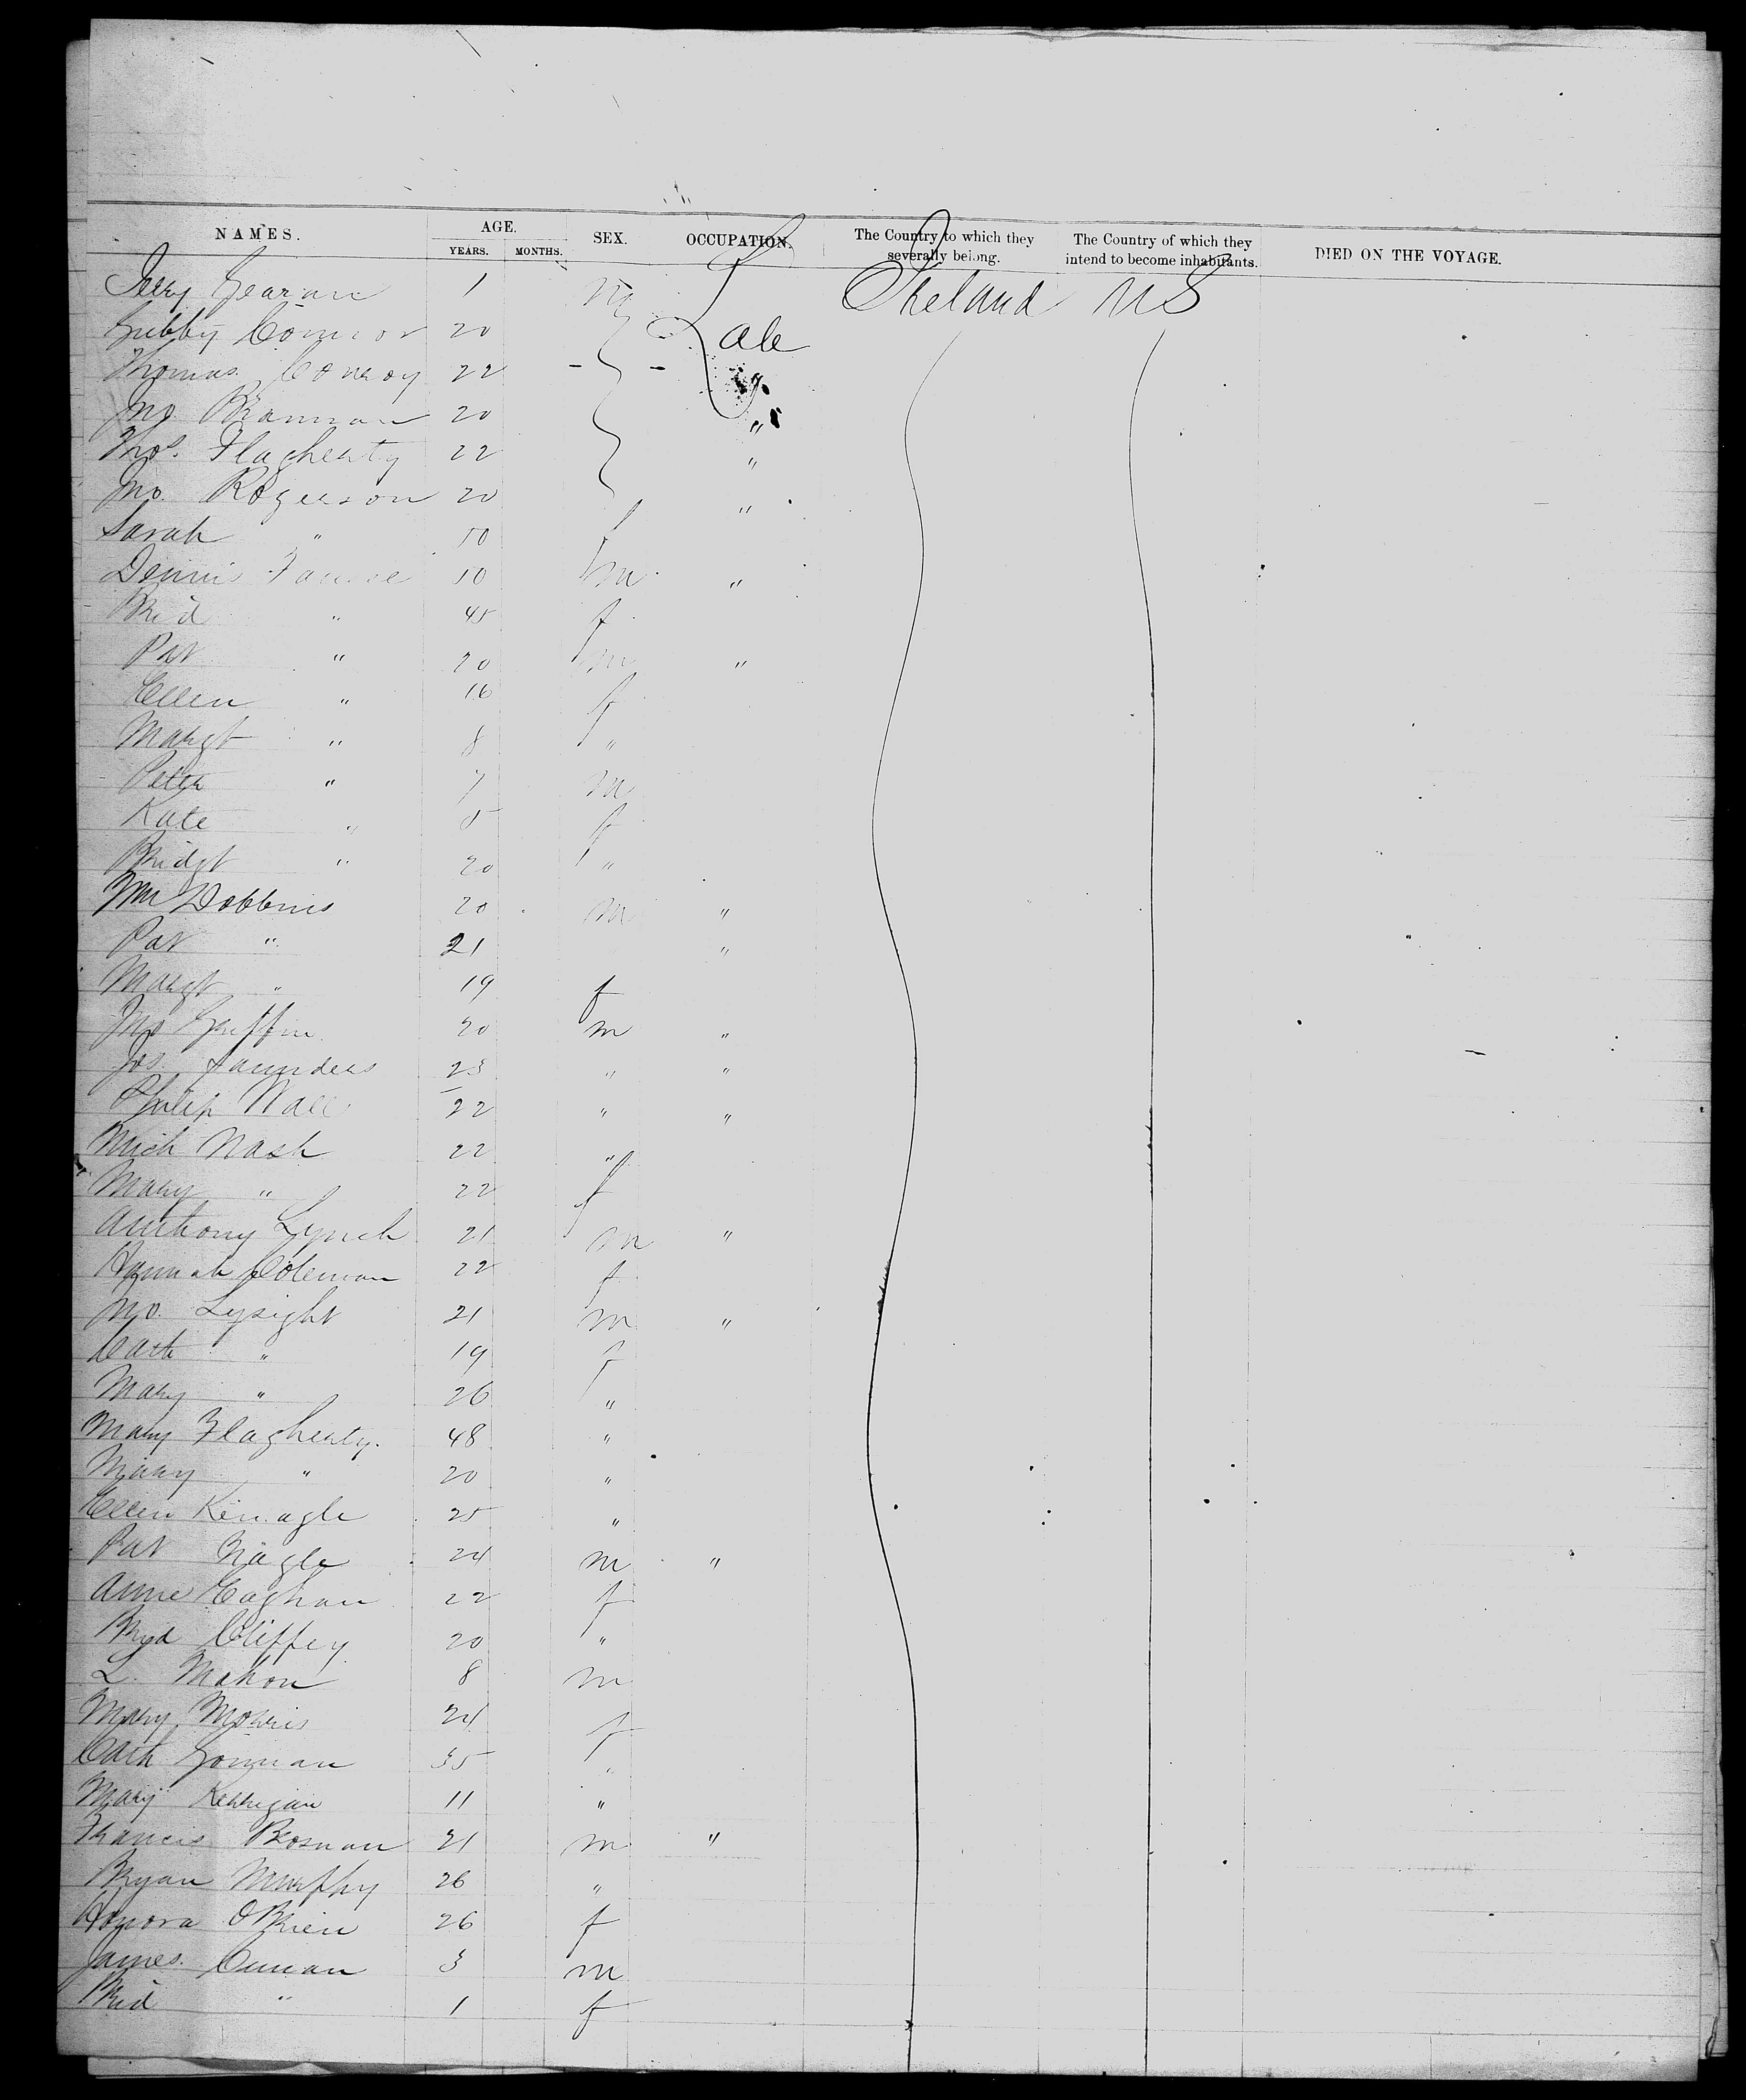 NAMES. AGE. YEARS. MONTHS. SEX. OCCUPATION. The Country to which they severally belong. The Country of which they intend to become inhabitants. DIED ON THE VOYAGE.
Jerry Gearan 1 m Ireland US
Gubby Connor 20 Lab
Thomas Conroy 22 "
Jno Brannan 20 "
Thos. Flagherty 22 "
Jno. Rogerson 20 "
Sarah " 50 f
Dennis 50 m "
Brid " 45 f
Pat " 20 m "
Ellen " 16 f
Margt " 8 "
Peter " 7 m
Kate " 5 f
Bridgt " 20 "
Wm Dobbins 20 m "
Pat " 21 "
Margt " 19 f
Jno Griffin 20 m "
Jos. Saunders 23 " "
Philip Wall 22 " "
Mich Nash 22 "
Mary " 22 f
Anthony Lynch 21 m "
Hannah Coleman 22 f
Jno. Lysight 21 m "
Cath " 19 f
Mary " 26 "
Mary Flagherty. 48 "
Mary " 20 "
Ellen Kennagle 25 "
Pat Nagle 24 m "
Anne Eaghan 22 f
Bryd Cliffey 20 "
L. Mahon 8 m
Mary Morris 24 f
Cath Gorman 35 "
Mary Kerrigan 11 "
Francis Brosnan 21 m "
Bryan Murphy 26 "
Honora OBrien 26 f
James. Cunan 3 m
Brid " 1 f